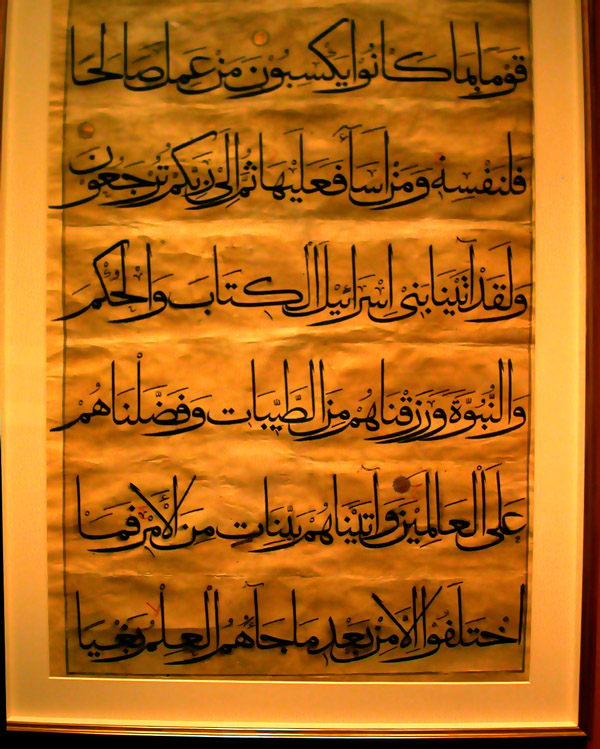 قَوْمًا بِمَا كَانُوا يَكْسِبُونَ مَنْ عَمِلَ صَالِحًا
فَلِنَفْسِهِ وَمَنْ اَسَآءَ فَعَلَيْهَا ثُمَّ اِلَى رَبِّكُمْ تُرْجَعُونَ
وَلَقَدْ اٰتَيْنَا بَنِى اِسْرَائِيلَ الْكِتَابَ وَالْحُكْمَ
وَالنُّبُوَّةَ وَرَزَقْنَاهُمْ مِنَ الطَّيِّبَاتِ وَفَضَّلْنَاهُمْ
عَلَى الْعَالَمِينَ وَاٰتَيْنَاهُمْ بَيِّنَاتٍ مِنَ الْاَمْرِ فَمَا
اخْتَلَفُوا اِلَّا مِنْ بَعْدِ مَا جَآءَهُمُ الْعِلْمُ بَغْيًا